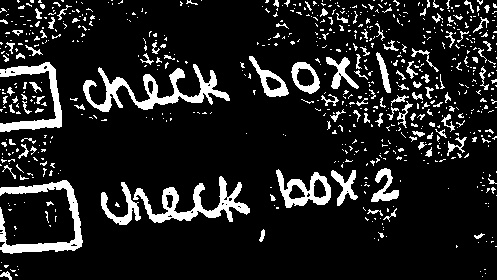 check box 1
check box 2